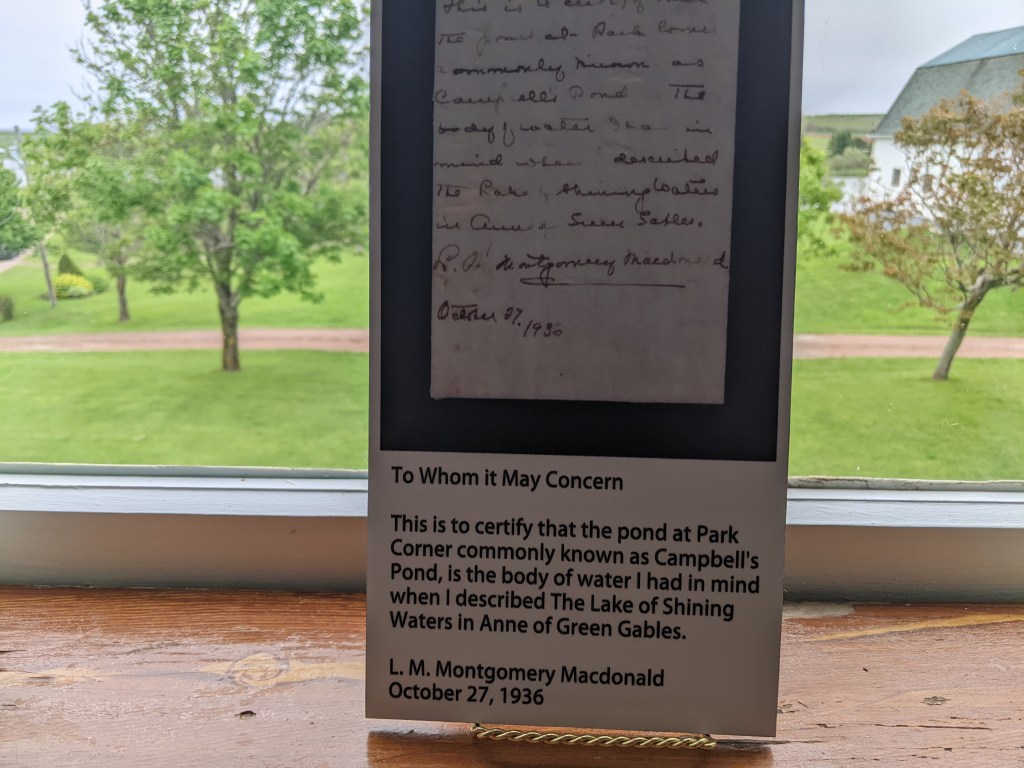 This is to certify that
the pond at Park Corner
commonly known as
Campbell's Pond The
body of water I had in
mind when described
The Lake of Shining Waters
in Anne of Green Gables.
L. M. Montgomery Macdonald
October 27, 1936
To Whom it May Concern
This is to certify that the pond at Park
Corner commonly known as Campbell's
Pond, is the body of water I had in mind
when I described The Lake of Shining
Waters in Anne of Green Gables.
L. M. Montgomery Macdonald
October 27, 1936